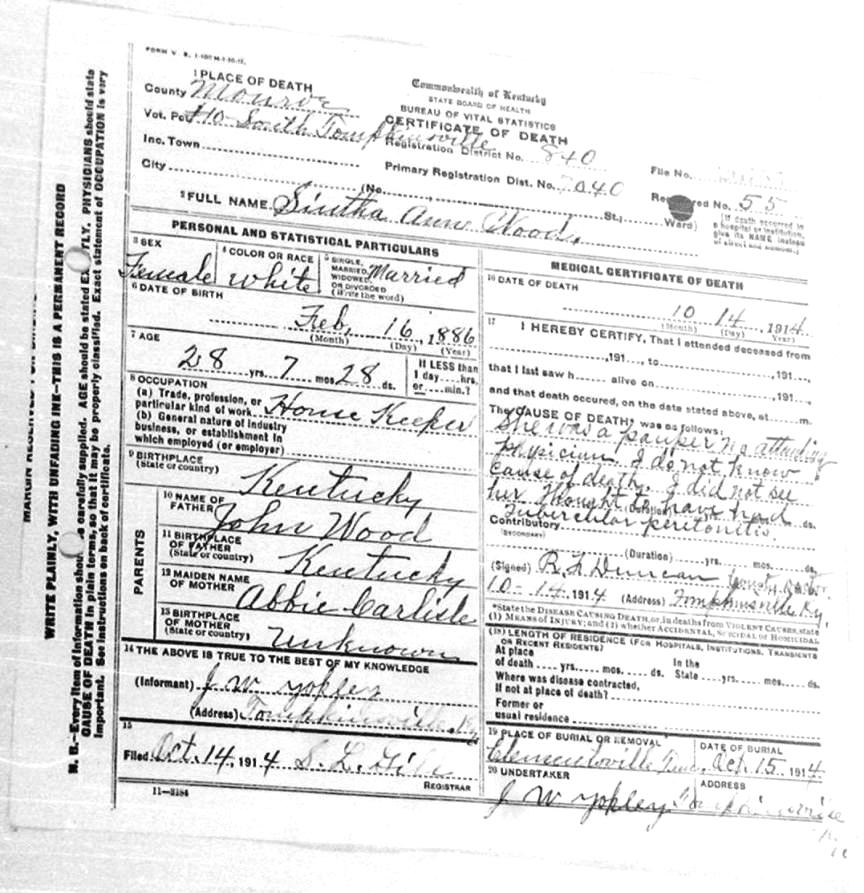 FORM V. S. 1-100 M-1-10-12.
1 PLACE OF DEATH
County Monroe
Vot. Pct #10 South Tompkinsville
Inc. Town
City
Commonwealth of Kentucky
STATE BOARD OF HEALTH
BUREAU OF VITAL STATISTICS
CERTIFICATE OF DEATH
Registration District No. 840
File No.
Primary Registration Dist. No. 7040
Registered No. 55
(No. St.; Ward)
[If death occurred in a hospital or institution, give its NAME instead of street and number.]
2 FULL NAME Sintha Ann Woods.
PERSONAL AND STATISTICAL PARTICULARS
3 SEX
Female
4 COLOR OR RACE
White
5 SINGLE, MARRIED, WIDOWED, OR DIVORCED (Write the word)
Married
6 DATE OF BIRTH
Feb, 16, 1886
(Month) (Day) (Year)
7 AGE
28 yrs. 7 mos. 28 ds.
If LESS than 1 day....hrs. or....min.?
8 OCCUPATION
(a) Trade, profession, or particular kind of work House Keeper
(b) General nature of industry business, or establishment in which employed (or employer)
9 BIRTHPLACE
(State or country) Kentucky
PARENTS
10 NAME OF FATHER John Wood
11 BIRTHPLACE OF FATHER (State or country) Kentucky
12 MAIDEN NAME OF MOTHER Abbie Carlisle
13 BIRTHPLACE OF MOTHER (State or country) Unknown
14 THE ABOVE IS TRUE TO THE BEST OF MY KNOWLEDGE
(Informant) J W Yokley
(Address) Tompkinsville Ky
15
Filed Oct. 14 1914 S. L.
REGISTRAR
11-3184
MEDICAL CERTIFICATE OF DEATH
16 DATE OF DEATH
10 14, 1914
(Month) (Day) Year)
17 I HEREBY CERTIFY, That I attended deceased from
,191...., to ,191....,
that I last saw h alive on ,191....,
and that death occured, on the date stated above, at m.
The CAUSE OF DEATH* was as follows:
She was a pauper no attending
physician. I do not know
cause of death. I did not see
her Thought to have had
Tubercular peritonitis.
(Duration) ds.
Contributory
(SECONDARY)
(Duration) yrs. mos. ds.
(Signed) R. F Duncan County
10-14. 1914 (Address) Tompkinsville Ky.
*State the DISEASE CAUSING DEATH, or, in deaths from VIOLENT CAUSES, state
(1) MEANS OF INJURY; and (2) whether ACCIDENTAL, SUICIDAL or HOMICIDAL
(18) LENGTH OF RESIDENCE (FOR HOSPITALS, INSTITUTIONS, TRANSIENTS OR RECENT RESIDENTS)
At place of death.... yrs. mos. ds. In the State.... yrs. mos. ds.
Where was disease contracted,
If not at place of death?
Former or
usual residence
19 PLACE OF BURIAL OR REMOVAL
DATE OF BURIAL
Oct. 15, 1914
20 UNDERTAKER
J W Yokley
ADDRESS
WRITE PLAINLY, WITH UNFADING INK—THIS IS A PERMANENT RECORD
N. B.—Every item of information should be carefully supplied. AGE should be stated EXACTLY. PHYSICIANS should state
CAUSE OF DEATH in plain terms, so that it may be properly classified. Exact statement of OCCUPATION is very
important. See instructions on back of certificate.